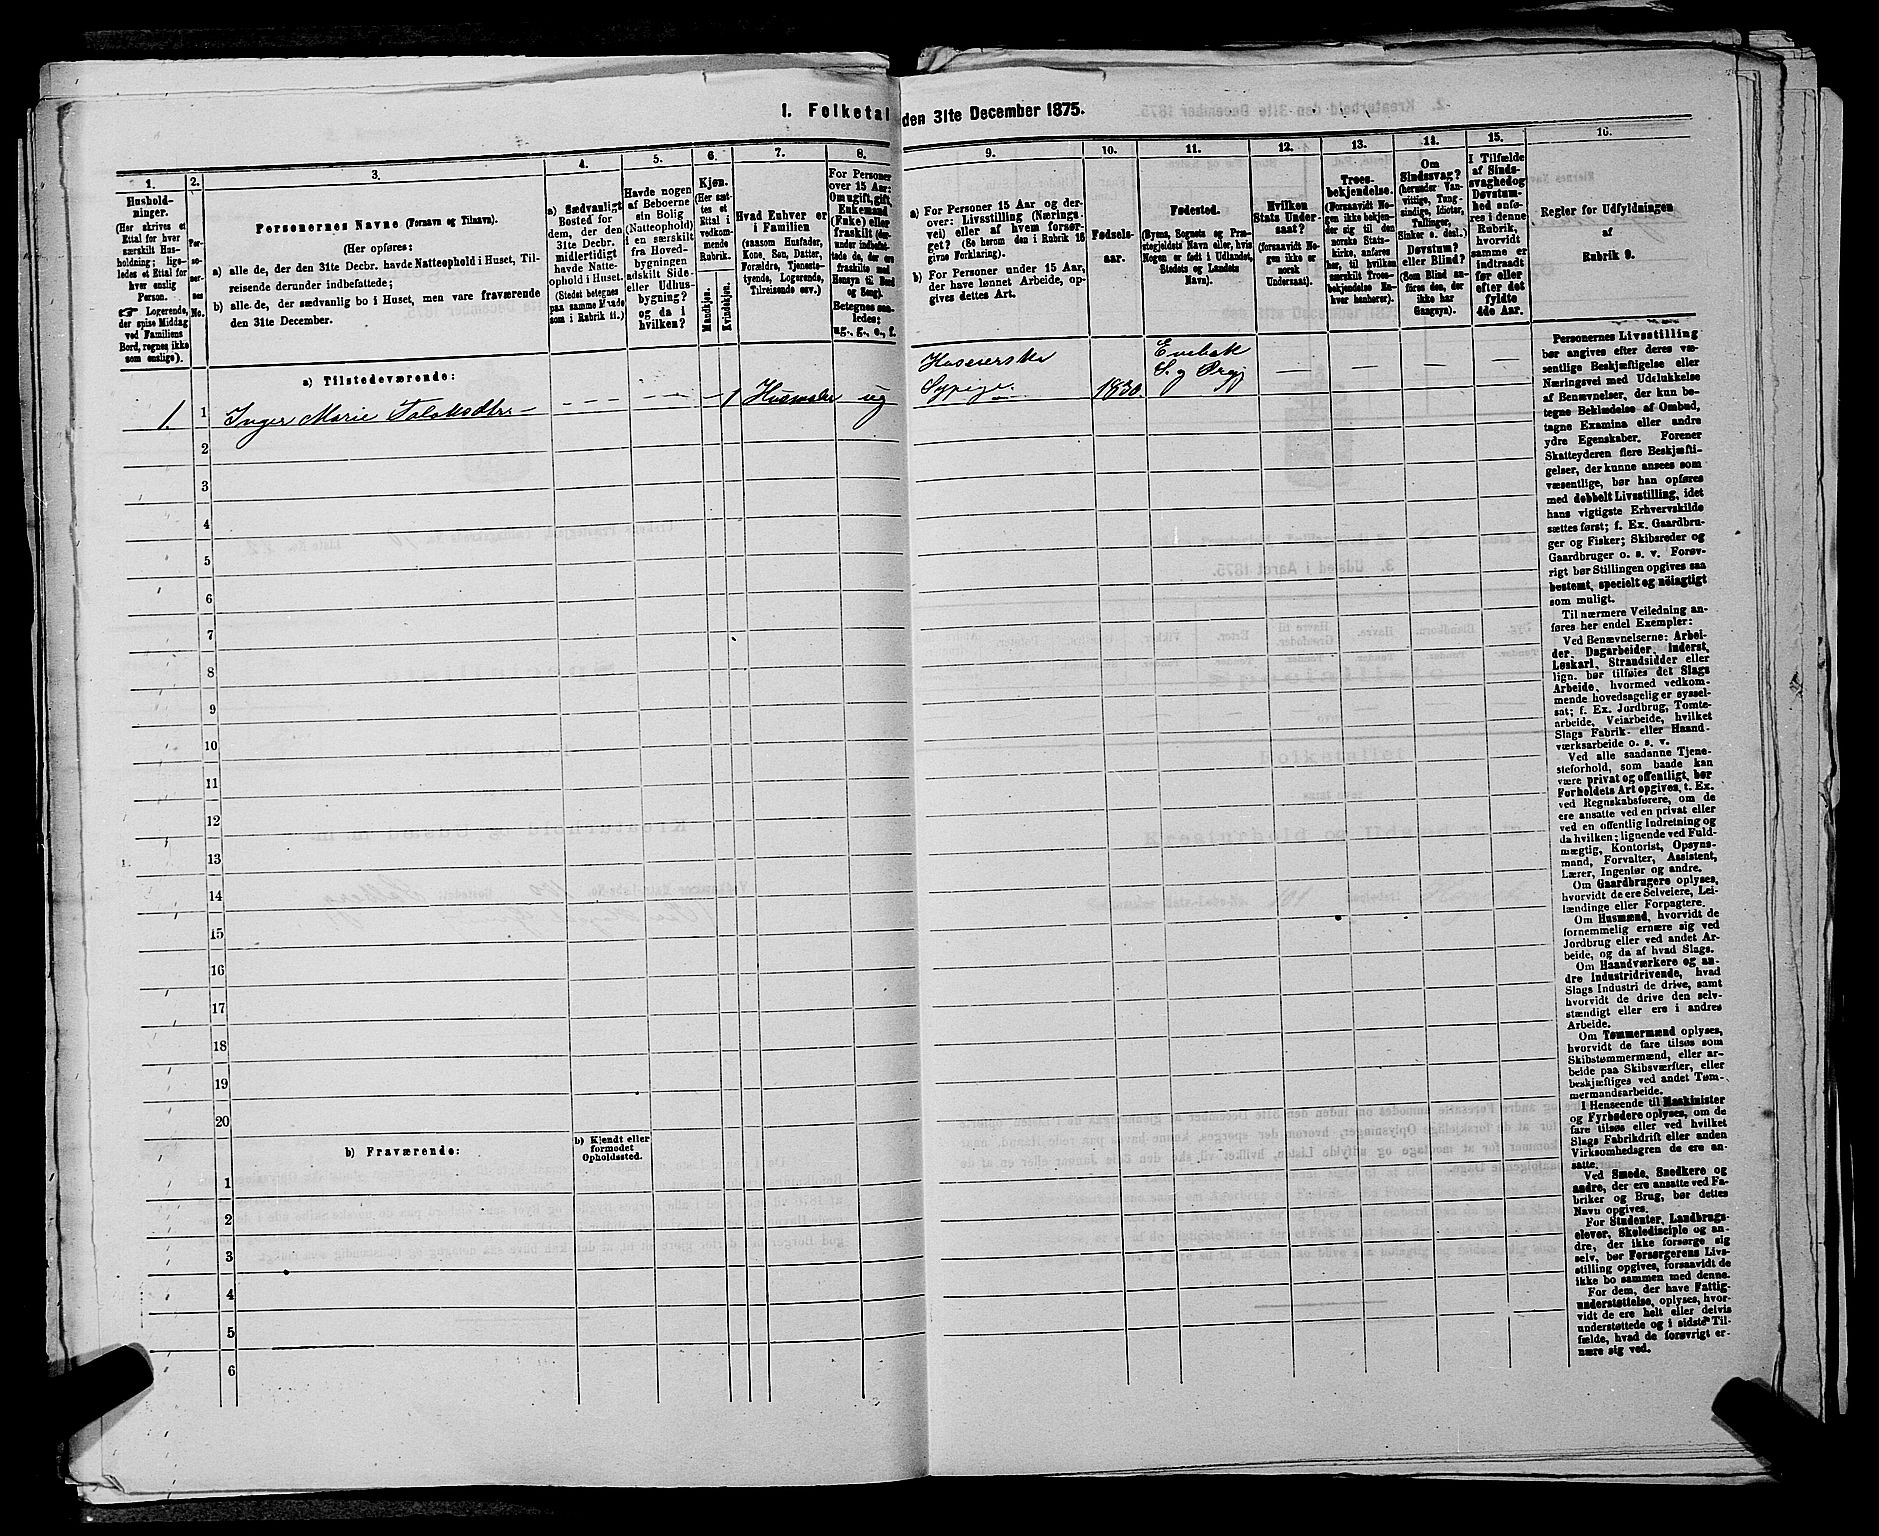 1. Folketal den 31te December 1875.
1.
2.
3.
4.
5.
6.
7.
8.
9.
10.
11.
12.
13.
14.
15.
16.
Hushold-
ninger.
(Her skrives et
Ettal for hver
særskilt Hus-
holdning; lige-
ledes et Ettal for
hver enslig
Person.
☞ Logerende,
der spise Middag
ved Familiens
Bord, regnes ikke
som enslige).
Per-
so-
ner-
nes
No.
Personernes Navne (Fornavn og Tilnavn).
(Her opføres:
a) alle de, der den 31te Decbr. havde Natteophold i Huset, Til-
reisende derunder indbefattede;
b) alle de, der sædvanlig bo i Huset, men vare fraværende
den 31te December.
a) Sædvanligt
Bosted for
dem, der den
31te Decbr.
midlertidigt
havde Natte-
ophold i Huset.
(Stedet betegnes
paa samme Maade
som i Rubrik 11.)
Havde nogen
af Beboerne
sin Bolig
(Natteophold)
i en særskilt
fra Hoved-
bygningen
adskilt Side-
eller Udhus-
bygning?
og da i
hvilken?
Kjøn.
(Her sæt-
tes et
Ettal i
vedkom-
mende
Rubrik.
Mandkjøn.
Kvindekjøn.
Hvad Enhver er
i Familien
(saasom Husfader,
Kone, Søn, Datter,
Forældre, Tjeneste-
tyende, Logerende,
Tilreisende osv.)
For Personer
over 15 Aar:
Om ugift, gift,
Enkemand
(Enke) eller
fraskilt (der-
under indbefat-
tede de, der ere
fraskilte med
Hensyn til Bord
og Seng).
Betegnes saa-
ledes:
ug., g., e., f.
a) For Personer 15 Aar og der-
over: Livsstilling (Nærings-
vei) eller af hvem forsør-
get? (Se herom den i Rubrik 16
givne Forklaring).
b) For Personer under 15 Aar,
der have lønnet Arbeide, op-
gives dettes Art.
Fødsels-
aar.
Fødested.
(Byens, Sognets og Præ-
stegjeldets Navn eller, hvis
Nogen er født i Udlandet,
Stedets og Landets
Navn).
Hvilken
Stats Under-
saat?
(forsaavidt No-
gen ikke er
norsk
Undersaat).
Troes-
bekjendelse.
(Forsaavidt No-
gen ikke bekjen-
der sig til den
norske Stats-
kirke, anføres
her, til hvilken
særskilt Troes-
bekjendelse En-
hver henhører).
Om
Sindssvag?
(herunder Van-
vittige, Tung-
sindige, Idioter,
Tullinger,
Sinker o. desl.)
Døvstum?
eller Blind?
(Som Blind an-
føres den, der
ikke har
Gangsyn).
I Tilfælde
af Sinds-
svaghed og
Døvstum-
hed anfø-
res i denne
Rubrik,
hvorvidt
samme er
indtraadt
før eller
efter det
fyldte
4de Aar.
Regler for Udfyldningen
af
Rubrik 9.
a) Tilstedeværende:
1. 1 Inger Marie Falaksdtr - - - - - - - 1 Husmoder ug Huseierske Sypige. 1830. Enebak S. og Præj — — — —
2
3
4
5
6
7
8
9
10
11
12
13
14
15
16
17
18
19
20
b) Fraværende:
b) Kjendt eller
formodet
Opholdssted.
1
2
3
4
5
6
Personernes Livsstilling
bør angives efter deres væ-
sentlige Beskjæftigelse eller
Næringsvei med Udelukkelse
af Benævnelser, der kun be-
tegne Beklædelse af Ombud,
tagne Examina eller andre
ydre Egenskaber. Forener
Skatteyderen flere Beskjæfti-
gelser, der kunne ansees som
væsentlige, bør han opføres
med dobbelt Livsstilling, idet
hans vigtigste Erhvervskilde
sættes først; f. Ex. Gaardbru-
ger og Fisker; Skibsreder og
Gaardbruger o. s. v. Forøv-
rigt bør Stillingen opgives saa
bestemt, specielt og nöiagtigt
som muligt.
Til nærmere Veiledning an-
føres her endel Exempler:
Ved Benævnelserne: Arbei-
der, Dagarbeider, Inderst,
Løskarl, Strandsidder eller
lign. bør tilføies det Slags
Arbeide, hvormed vedkom-
mende hovedsagelig er syssel-
sat; f. Ex. Jordbrug, Tomte-
arbeide, Veiarbeide, hvilket
Slags Fabrik- eller Haand-
værksarbeide o. s. v.
Ved alle saadanne Tjene-
steforhold, som baade kan
være privat og offentligt, bør
Forholdets Art opgives, t. Ex.
ved Regnskabsførere, om de
ere ansatte ved en privat eller
ved en offentlig Indretning og
da hvilken; lignende ved Fuld-
mægtig, Kontorist, Opsyns-
mand, Forvalter, Assistent,
Lærer, Ingeniør og andre.
Om Gaardbrugere oplyses,
hvorvidt de ere Selveiere, Lei-
lændinge eller Forpagtere.
Om Husmænd, hvorvidt de
fornemmelig ernære sig ved
Jordbrug eller ved andet Ar-
beide, og da af hvad Slags.
Om Haandværkere og an-
dre Industridrivende, hvad
Slags Industri de drive, samt
hvorvidt de drive den selv-
stændigt eller ere i andres
Arbeide.
Om Tømmermænd oplyses,
hvorvidt de fare tilsøs som
Skibstømmermænd, eller ar-
beide paa Skibsværfter, eller
beskjæftiges ved andet Tøm-
mermandsarbeide.
I Henseende til Maskinister
og Fyrbødere oplyses, om de
fare tilsøs eller ved hvilket
Slags Fabrikdrift eller anden
Virksomhedsgren de ere an-
satte.
Ved Smede, Snedkere og
andre, der ere ansatte ved Fa-
briker og Brug, bør dettes
Navn opgives.
For Studenter, Landbrugs-
elever, Skoledisciple og an-
dre, der ikke forsørge sig
selv, bør Forsørgerens Livs-
stilling opgives, forsaavidt de
ikke bo sammen med denne.
For dem, der have Fattig-
understøttelse, oplyses, hvor-
vidt de ere helt eller delvis
understøttede og i sidste Til-
fælde, hvad de forøvrigt er-
nære sig ved.